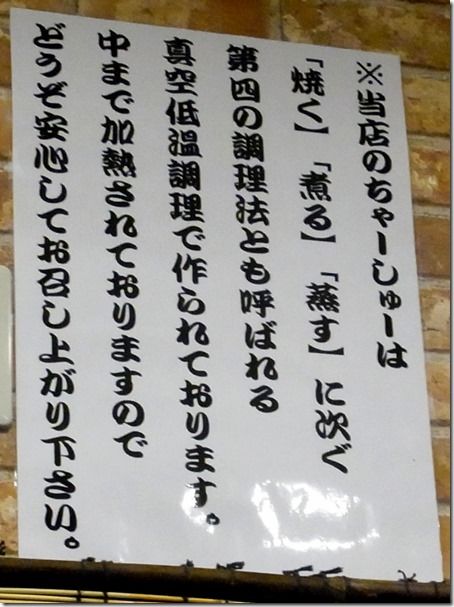 ※当店のちゃーしゅーは
「焼く」「煮る」「蒸す」に次ぐ
第四の調理法とも呼ばれる
真空低温調理で作られております。
中まで加熱されておりますので
どうぞ安心してお召し上がり下さい。